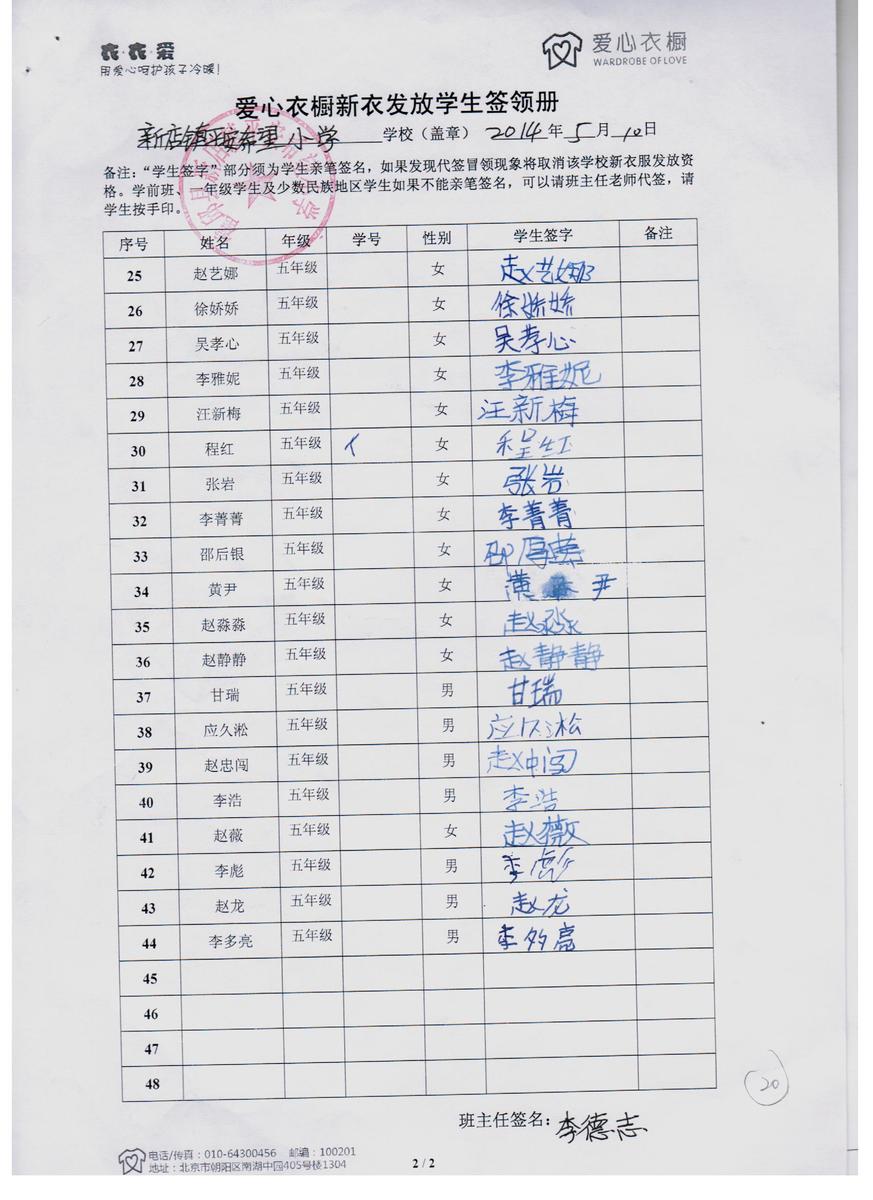 衣·衣·爱
用爱心呵护孩子冷暖!
爱心衣橱
WARDROBE OF LOVE
爱心衣橱新衣发放学生签领册
新店镇平安希望小学 学校（盖章） 2014年5月10日
备注：“学生签字”部分须为学生亲笔签名，如果发现代签冒领现象将取消该学校新衣服发放资
格。学前班、一年级学生及少数民族地区学生如果不能亲笔签名，可以请班主任老师代签，请
学生按手印。
序号 姓名 年级 学号 性别 学生签字 备注
25 赵艺娜 五年级 女 赵艺娜
26 徐娇娇 五年级 女 徐娇娇
27 吴孝心 五年级 女 吴孝心
28 李雅妮 五年级 女 李雅妮
29 汪新梅 五年级 女 汪新梅
30 程红 五年级 女 程红
31 张岩 五年级 女 张岩
32 李菁菁 五年级 女 李菁菁
33 邵后银 五年级 女
34 黄尹 五年级 女 黄尹
35 赵淼淼 五年级 女 赵淼
36 赵静静 五年级 女 赵静静
37 甘瑞 五年级 男 甘瑞
38 应久淞 五年级 男 应久淞
39 赵忠闯 五年级 男 赵忠闯
40 李浩 五年级 男 李浩
41 赵薇 五年级 女 赵薇
42 李彪 五年级 男 李彪
43 赵龙 五年级 男 赵龙
44 李多亮 五年级 男 李多亮
45
46
47
48
20
班主任签名：李德志
电话/传真：010-64300456 邮编：100201
地址：北京市朝阳区南湖中园405号楼1304
2 / 2